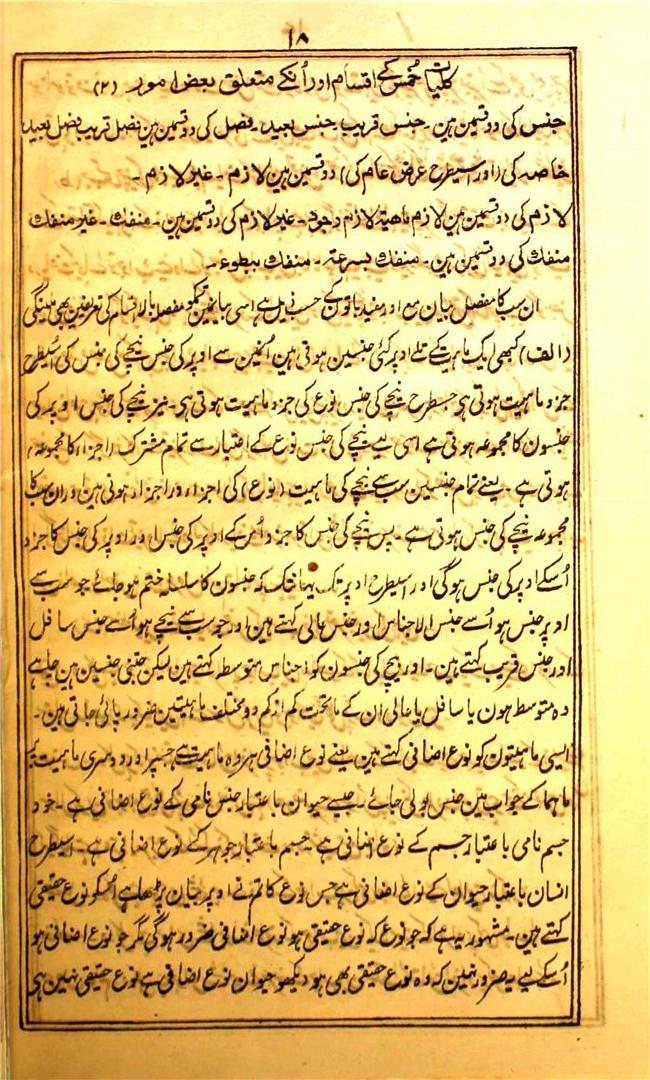 ۱۸
کلیات خمس کے اقسام اور اُنکے متعلق بعض امور (۲)
جنس کی دو قسمین ہین۔ جنس قریب۔ جنس بعید۔ فصل کی دو قسمین ہین فصل قریب فصل بعید
خاصہ کی (اور اسیطرح عرض عام کی) دو قسمین ہین لازم۔ غیر لازم۔
لازم کی دو قسمین ہین لازم ماهیة لازم وجود۔ غیر لازم کی دو قسمین ہین۔ منفک۔ غیر منفک
منفک کی دو قسمین ہین۔ منفک بسرعتہ۔ منفک ببطوء۔
ان سب کا مفصل بیان مع اور مفید باتون کے حسب ذیل ہے اسی بیانمین تمکو مفصل بالا اقسام کی تعریفین بھی ملینگی
(الف) کبھی ایک ماہیت کے تلے اوپر کئی جنسین ہوتی ہین اُنمین سے اوپر کی جنس نیچے کی جنس کی اسیطرح
جزو ماہیت ہوتی ہی جسطرح نیچے کی جنس نوع کی جزو ماہیت ہوتی ہی۔ نیز نیچے کی جنس اوپر کی
جنسون کا مجموعہ ہوتی ہے اسی لیے نیچے کی جنس نوع کے اعتبار سے تمام مشترک (اجزاء کا مجموعہ)
ہوتی ہے۔ یعنے تمام جنسین سب سے نیچے کی ماہیت (نوع) کی اجزاء در اجزاء ہوتی ہین اور ان سب کا
مجموعہ نیچے کی جنس ہوتی ہے۔ پس نیچے کی جنس کا جزو اُس کے اوپر کی جنس اور اوپر کی جنس کا جزو
اُسکے اوپر کی جنس ہوگی اور اسیطرح اوپر تک یہانتک کہ جنسون کا سلسلہ ختم ہو جائے جو سب سے
اوپر جنس ہو اُسے جنس الاجناس اور جنس عالی کہتے ہین اور جو سب سے نیچے ہو اُسے جنس سافل
اور جنس قریب کہتے ہین۔ اور بیچ کی جنسون کو اجناس متوسطہ کہتے ہین لیکن جتنی جنسین ہین چاہے
وہ متوسط ہون یا سافل یا عالی ان کے ماتحت کم از کم دو مختلف ماہیتین ضرور پائی جاتی ہین۔
ایسی ماہیتون کو نوع اضافی کہتے ہین یعنے نوع اضافی ہر وہ ماہیت ہے جسپر اور دوسری ماہیت پر
ماہما کے جواب مین جنس بولی جائے۔ جیسے حیوان باعتبار جنس نامی کے نوع اضافی ہے۔ خود
جسم نامی باعتبار جسم کے نوع اضافی ہے۔ جسم باعتبار جوہر کے نوع اضافی ہے۔ اسیطرح
انسان باعتبار حیوان کے نوع اضافی ہے جس نوع کا تم نے اوپر بیان پڑھا ہے اُسکو نوع حقیقی
کہتے ہین۔ مشہور یہ ہے کہ جو نوع کہ نوع حقیقی ہو نوع اضافی ضرور ہوگی مگر جو نوع اضافی ہو
اُسکے لیے یہ ضرور نہین کہ وہ نوع حقیقی بھی ہو دیکھو حیوان نوع اضافی ہے نوع حقیقی نہین ہی